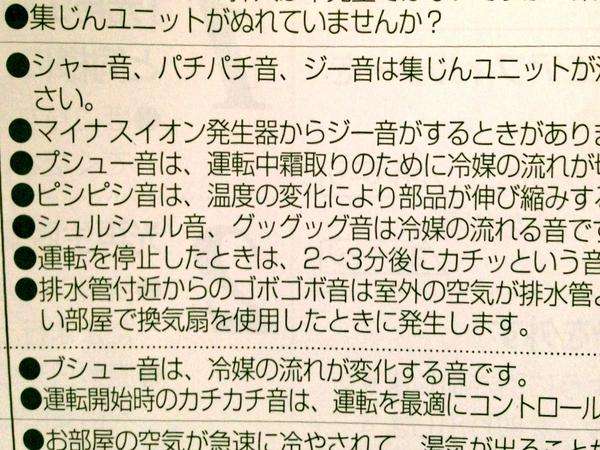 ●集じんユニットがぬれていませんか？
●シャー音、パチパチ音、ジー音は集じんユニットが
さい。
●マイナスイオン発生器からジー音がするときがありま
●プシュー音は、運転中霜取りのために冷媒の流れが
●ピシピシ音は、温度の変化により部品が伸び縮みする
●シュルシュル音、グッグッグ音は冷媒の流れる音です
●運転を停止したときは、2〜3分後にカチッという音
●排水管付近からのゴボゴボ音は室外の空気が排水管
い部屋で換気扇を使用したときに発生します。
●ブシュー音は、冷媒の流れが変化する音です。
●運転開始時のカチカチ音は、運転を最適にコントロール
●お部屋の空気が急速に冷やされて、湯気が出ることが